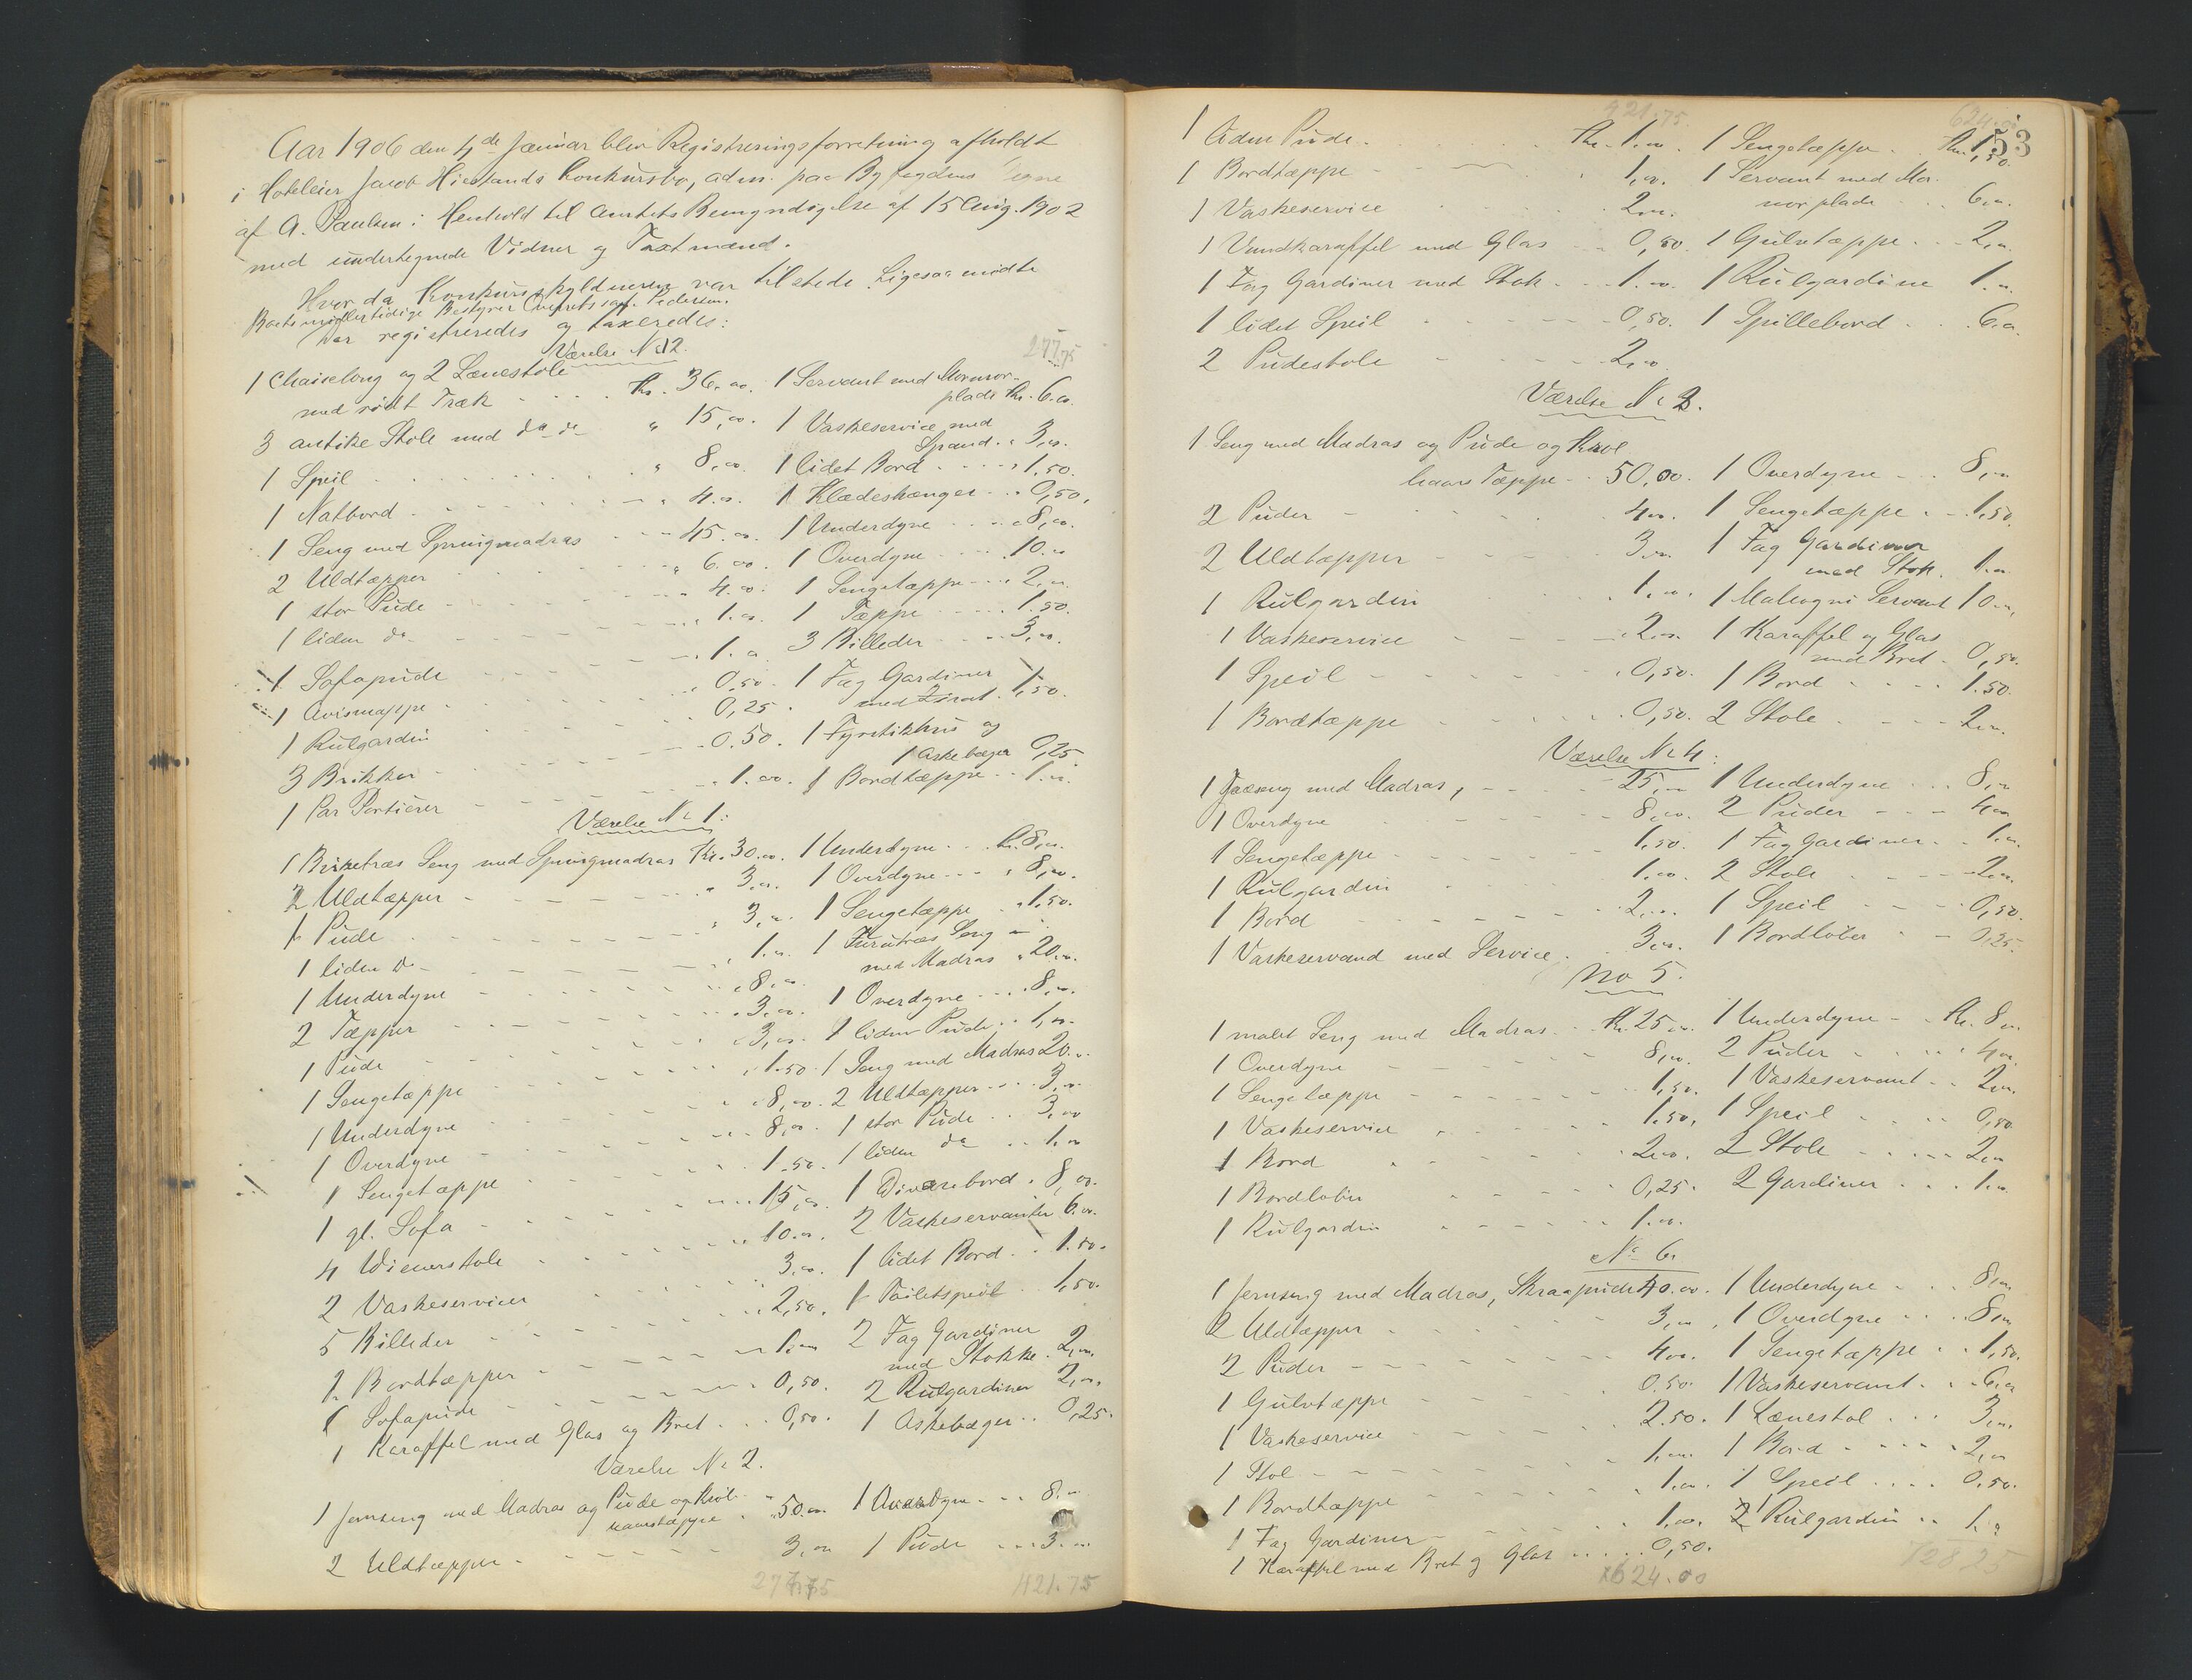 Aar 1906 den 4de Januar blev Registreringsforretning afholdt
i Hoteleier Jacob Hiestands Konkursbo, adm. paa Byfogdens Vegne
af A. Paulsen i Henhold til Amtets Bemyndigelse af 15 Aug. 1902
med undertegnede Vidner og Taxtmænd.
Hvor da Konkursskyldneren var tilstede. Ligesaa mødte
Boets midlertidige Bestyrer Overretssagf. Pedersen.
Der registreredes og taxeredes:
Værelse No 12.
277.75
1 Chaiselong og 2 Lænestole
med rødt Træk Kr. 36.00. 1 Servant med Marmor-
plade Kr. 6.00
3 antike Stole med do do " 15,00. 1 Vaskeservice med
Spand " 3,00.
1 Speil " 8,00. 1 lidet Bord 1,50.
1 Natbord " 4.00. 1 Klædeshænger 0,50.
1 Seng med Springmadras 45.00. 1 Underdyne 8,00.
2 Uldtæpper " 6.00. 1 Overdyne 10.00
1 stor Pude " 4.00. 1 Sengetæppe 2,00.
1 liden do 1.00. 1 Tæppe 1.50.
1 Sofapude 1.00 3 Billeder 3,00.
1 Avismappe 0.50. 1 Fag Gardiner
med Zirat 1,50.
1 Rulgardin 0,25.
3 Brikker 0.50. 1 Fyrstikhus og
1 Askebæger 0,25
1 Par Portierer 1.00. 1 Bordtæppe 1.00.
Værelse No 1:
1 Birketræs Seng med Springmadras Kr. 30.00. 1 Underdyne Kr. 8,00.
2 Uldtæpper " 3,00. 1 Overdyne " 8,00.
1 Pude " 3,00. 1 Sengetæppe " 1.50.
1 liden do 1.00. 1 Furutræs Seng
med Madras " 20.00.
1 Underdyne " 8.00.
2 Tæpper 3,00. 1 Overdyne 8,00.
1 Pude 3,00. 1 liden Pude 1,00.
1 Sengetæppe 1.50. 1 Seng med Madras 20.00.
1 Underdyne 8,00. 2 Uldtæpper 3,00.
1 Overdyne 8,00. 1 stor Pude 3,00
1 Sengetæppe 1.50. 1 liden do 1.00
1 gl. Sofa 15,00. 1 Divanbord 8,00.
4 Wienerstole 10.00. 2 Vaskeservanter 6.00.
2 Vaskeservicer 3,00. 1 lidet Bord 1.50.
5 Billeder 2,50. 1 Toiletspeil 1,50.
2 Bordtæpper 1.00 2 Fag Gardiner
med Stokke 2,00.
1 Sofapude 0,50. 2 Rulgardiner 2,00.
1 Karaffel med Glas og Bret 0,50. 1 Askebæger 0,25.
Værelse No 2.
1 Jernseng med Madras og Pude og Krøl-
haarstæppe 50.00. 1 Overdyne 8.00
2 Uldtæpper 3,00 1 Pude 3.00
421.75
421.75.
153
1 liden Pude Kr. 1.00. 1 Sengetæppe Kr. 1,50.
1 Bordtæppe 1,00. 1 Servant med Mar-
morplade 6.00.
1 Vaskeservice 2,00.
1 Vandkaraffel med Glas 0,50. 1 Gulvtæppe 2,00.
1 Fag Gardiner med Stok 1.00. 1 Rulgardine 1.00.
1 lidet Speil 0,50. 1 Spillebord 6.00.
2 Pudestole 2,00.
Værelse No 3.
1 Seng med Madras og Pude og Krøl
haars Tæppe 50,00. 1 Overdyne 8,00
2 Puder 4,00. 1 Sengetæppe 1,50.
2 Uldtæpper 3,00. 1 Fag Gardiner
med Stok. 1.00
1 Rulgardin 1.00. 1 Mahogni Servant 10.00.
1 Vaskeservice 2,00. 1 Karaffel og Glas
med Bret 0,50.
1 Speil 0,50. 1 Bord 1.50.
1 Bordtæppe 0,50. 2 Stole 2,00.
Værelse No 4:
1 Jærnseng med Madras, 25,00 1 Underdyne 8,00
1 Overdyne 8,00. 2 Puder 4,00
1 Sengetæppe 1,50. 1 Fag Gardiner 1.00.
1 Rulgardin 1.00. 2 Stole 2,00.
1 Bord 2,00. 1 Speil 0,50.
1 Vaskeservand med Service. 3,00. 1 Bordløber 0,25.
No 5.
1 malet Seng med Madras Kr. 25,00. 1 Underdyne Kr. 8,00.
1 Overdyne 8,00. 2 Puder 4,00.
1 Sengetæppe 1,50. 1 Vaskeservant 2,00.
1 Vaskeservice 1.50. 1 Speil 0,50
1 Bord 2,00. 2 Stole 2,00
1 Bordløber 0,25. 2 Gardiner 1.00.
1 Rulgardin 1.00.
No 6.
1 Jernseng med Madras, Skraapude 40.00. 1 Underdyne 8,00
2 Uldtæpper 3,00. 1 Overdyne 8,00
2 Puder 4,00. 1 Sengetæppe 1,50.
1 Gulvtæppe 0.50. 1 Vaskeservant 6,00
1 Vaskeservice 2.50. 1 Lænestol 3,00.
1 Stol 1,00. 1 Bord 2,00
1 Bordtæppe 1.00. 1 Speil 0.50.
1 Fag Gardiner 1,00. 1 Rulgardin 1.00
1 Karaffel med Bret og Glas 0,50.
624.00
728.25